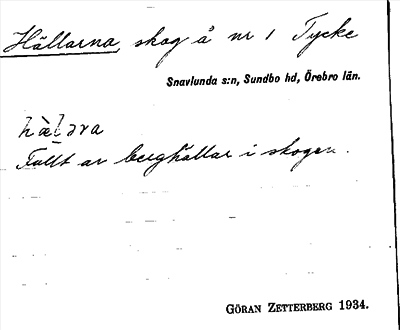 Hällarna, skog å nr 1 Tycke
Snavlunda s:n, Sundbo hd, Örebro län.
hàl̥əra
Fullt av berghällar i skogen.
GÖRAN ZETTERBERG 1934.